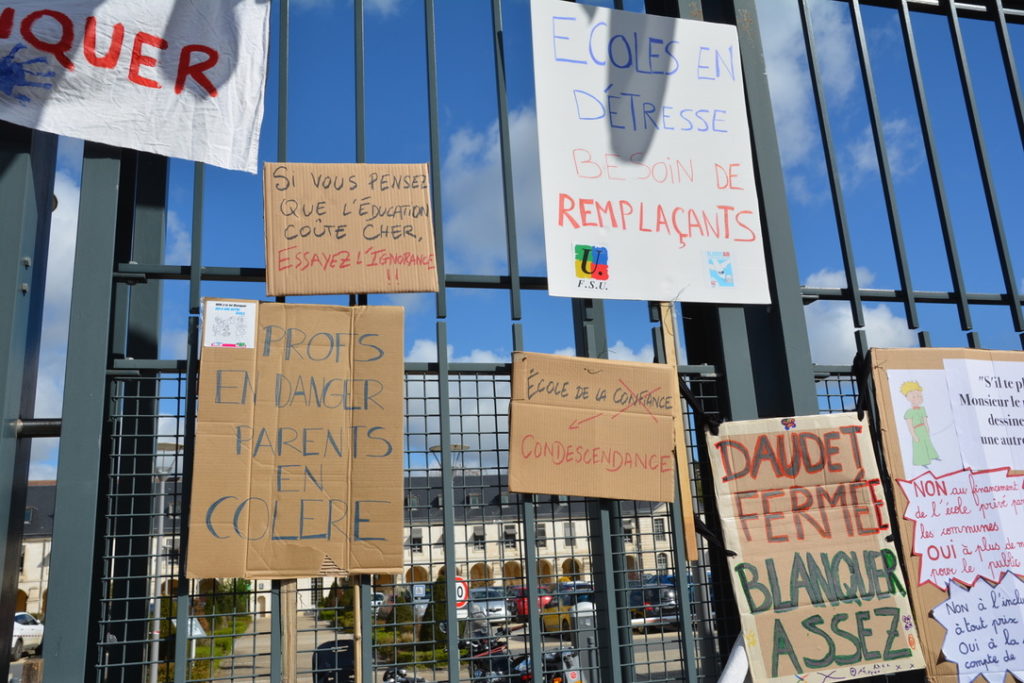 IQUER
SI VOUS PENSEZ
QUE L'ÉDUCATION
COÛTE CHER,
ESSAYEZ L'IGNORANCE
!!
ECOLES EN
DÉTRESSE
BESOIN DE
REMPLAÇANTS
F.S.U.
PROFS
EN DANGER
PARENTS
EN
COLÈRE
ÉCOLE DE LA CONFIANCE
CONDESCENDANCE
DAUDET
FERMÉE
BLANQUER
ASSEZ
"S'il te pl
Monsieur le
dessine
une autre
NON au financement
de l'école privé par
les communes
OUI à plus de m
pour le public
Non à l'inclu
à tout prix
Oui à la
compte de